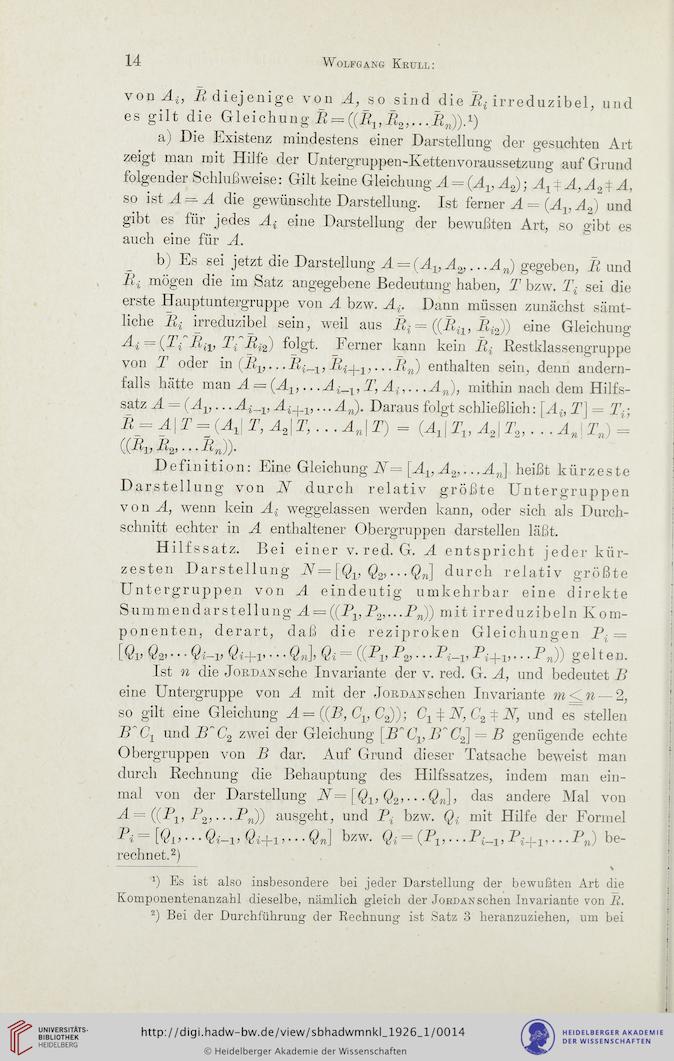 14 Wolfgang Krull:
von A_i, R̄ diejenige von A, so sind die R̄_i irreduzibel, und
es gilt die Gleichung R̄ = ((R̄_1, R̄_2, ... R̄_n)).¹)
a) Die Existenz mindestens einer Darstellung der gesuchten Art
zeigt man mit Hilfe der Untergruppen-Kettenvoraussetzung auf Grund
folgender Schlußweise: Gilt keine Gleichung A = (A_1, A_2); A_1 ≠ A, A_2 ≠ A,
so ist A = A die gewünschte Darstellung. Ist ferner A = (A_1, A_2) und
gibt es für jedes A_i eine Darstellung der bewußten Art, so gibt es
auch eine für A.
b) Es sei jetzt die Darstellung A = (A_1, A_2, ... A_n) gegeben, R̄ und
R̄_i mögen die im Satz angegebene Bedeutung haben, T bzw. T_i sei die
erste Hauptuntergruppe von A bzw. A_i. Dann müssen zunächst sämt-
liche R̄_i irreduzibel sein, weil aus R̄_i = ((R̄_i1, R̄_i2)) eine Gleichung
A_i = (T_i⌢R̄_i1, T_i⌢R̄_i2) folgt. Ferner kann kein R̄_i Restklassengruppe
von T oder in (R̄_1, ... R̄_i−1, R̄_i+1, ... R̄_n) enthalten sein, denn andern-
falls hätte man A = (A_1, ... A_i−1, T, A_i, ... A_n), mithin nach dem Hilfs-
satz A = (A_1, ... A_i−1, A_i+1, ... A_n). Daraus folgt schließlich: [A_i, T] = T_i;
R̄ = A | T = (A_1 | T, A_2 | T, ... A_n | T) = (A_1 | T_1, A_2 | T_2, ... A_n | T_n) =
((R̄_1, R̄_2, ... R̄_n)).
Definition: Eine Gleichung N = [A_1, A_2, ... A_n] heißt kürzeste
Darstellung von N durch relativ größte Untergruppen
von A, wenn kein A_i weggelassen werden kann, oder sich als Durch-
schnitt echter in A enthaltener Obergruppen darstellen läßt.
Hilfssatz. Bei einer v. red. G. A entspricht jeder kür-
zesten Darstellung N = [Q_1, Q_2, ... Q_n] durch relativ größte
Untergruppen von A eindeutig umkehrbar eine direkte
Summendarstellung A = ((P_1, P_2, ... P_n)) mit irreduzibeln Kom-
ponenten, derart, daß die reziproken Gleichungen P_i =
[Q_1, Q_2, ... Q_i−1, Q_i+1, ... Q_n], Q_i = ((P_1, P_2, ... P_i−1, P_i+1, ... P_n)) gelten.
Ist n die Jordansche Invariante der v. red. G. A, und bedeutet B
eine Untergruppe von A mit der Jordanschen Invariante m ≤ n — 2,
so gilt eine Gleichung A = ((B, C_1, C_2)); C_1 ≠ N, C_2 ≠ N, und es stellen
B⌢C_1 und B⌢C_2 zwei der Gleichung [B⌢C_1, B⌢C_2] = B genügende echte
Obergruppen von B dar. Auf Grund dieser Tatsache beweist man
durch Rechnung die Behauptung des Hilfssatzes, indem man ein-
mal von der Darstellung N = [Q_1, Q_2, ... Q_n], das andere Mal von
A = ((P_1, P_2, ... P_n)) ausgeht, und P_i bzw. Q_i mit Hilfe der Formel
P_i = [Q_1, ... Q_i−1, Q_i+1, ... Q_n] bzw. Q_i = (P_1, ... P_i−1, P_i+1, ... P_n) be-
rechnet.²)
¹) Es ist also insbesondere bei jeder Darstellung der bewußten Art die
Komponentenanzahl dieselbe, nämlich gleich der Jordanschen Invariante von R̄.
²) Bei der Durchführung der Rechnung ist Satz 3 heranzuziehen, um bei
UNIVERSITÄTS-
BIBLIOTHEK
HEIDELBERG
http://digi.hadw-bw.de/view/sbhadwmnkl_1926_1/0014
© Heidelberger Akademie der Wissenschaften
HEIDELBERGER AKADEMIE
DER WISSENSCHAFTEN